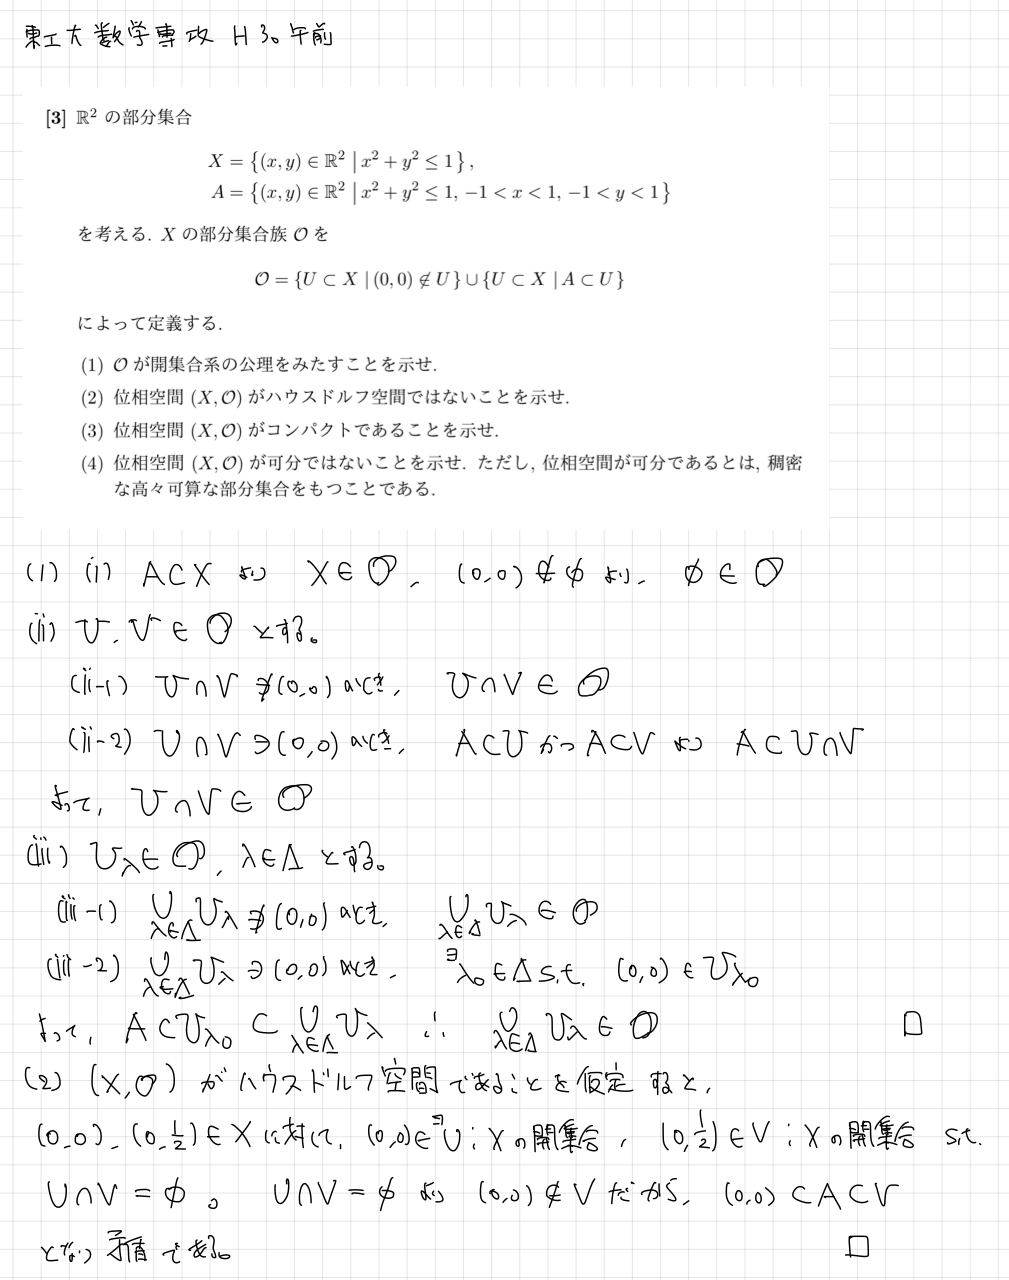 東工大数学専攻 H30午前
[3] ℝ² の部分集合
X = {(x, y) ∈ ℝ² | x² + y² ≤ 1},
A = {(x, y) ∈ ℝ² | x² + y² ≤ 1, −1 < x < 1, −1 < y < 1}
を考える. X の部分集合族 𝒪 を
𝒪 = {U ⊂ X | (0, 0) ∉ U} ∪ {U ⊂ X | A ⊂ U}
によって定義する.
(1) 𝒪 が開集合系の公理をみたすことを示せ.
(2) 位相空間 (X, 𝒪) がハウスドルフ空間ではないことを示せ.
(3) 位相空間 (X, 𝒪) がコンパクトであることを示せ.
(4) 位相空間 (X, 𝒪) が可分ではないことを示せ. ただし, 位相空間が可分であるとは, 稠密
な高々可算な部分集合をもつことである.
(1) (i) A⊂X より X∈𝒪, (0,0)∉φ より, φ∈𝒪
(ii) U, V∈𝒪 とする。
(ii-1) U∩V∌(0,0) のとき, U∩V∈𝒪
(ii-2) U∩V∋(0,0) のとき, A⊂U かつ A⊂V より A⊂U∩V
よって, U∩V∈𝒪
(iii) U_λ∈𝒪, λ∈Λ とする。
(iii-1) ∪_{λ∈Λ} U_λ∌(0,0) のとき, ∪_{λ∈Λ} U_λ∈𝒪
(iii-2) ∪_{λ∈Λ} U_λ∋(0,0) のとき, ∃λ₀∈Λ s.t. (0,0)∈U_{λ₀}
よって, A⊂U_{λ₀}⊂∪_{λ∈Λ} U_λ ∴ ∪_{λ∈Λ} U_λ∈𝒪 □
(2) (X,𝒪) がハウスドルフ空間であることを仮定すると,
(0,0), (0,1/2)∈X に対して, (0,0)∈∃U:Xの開集合, (0,1/2)∈V:Xの開集合 s.t.
U∩V=φ。 U∩V=φ より (0,0)∉V だから, (0,0)⊂A⊂V
となり矛盾である。 □